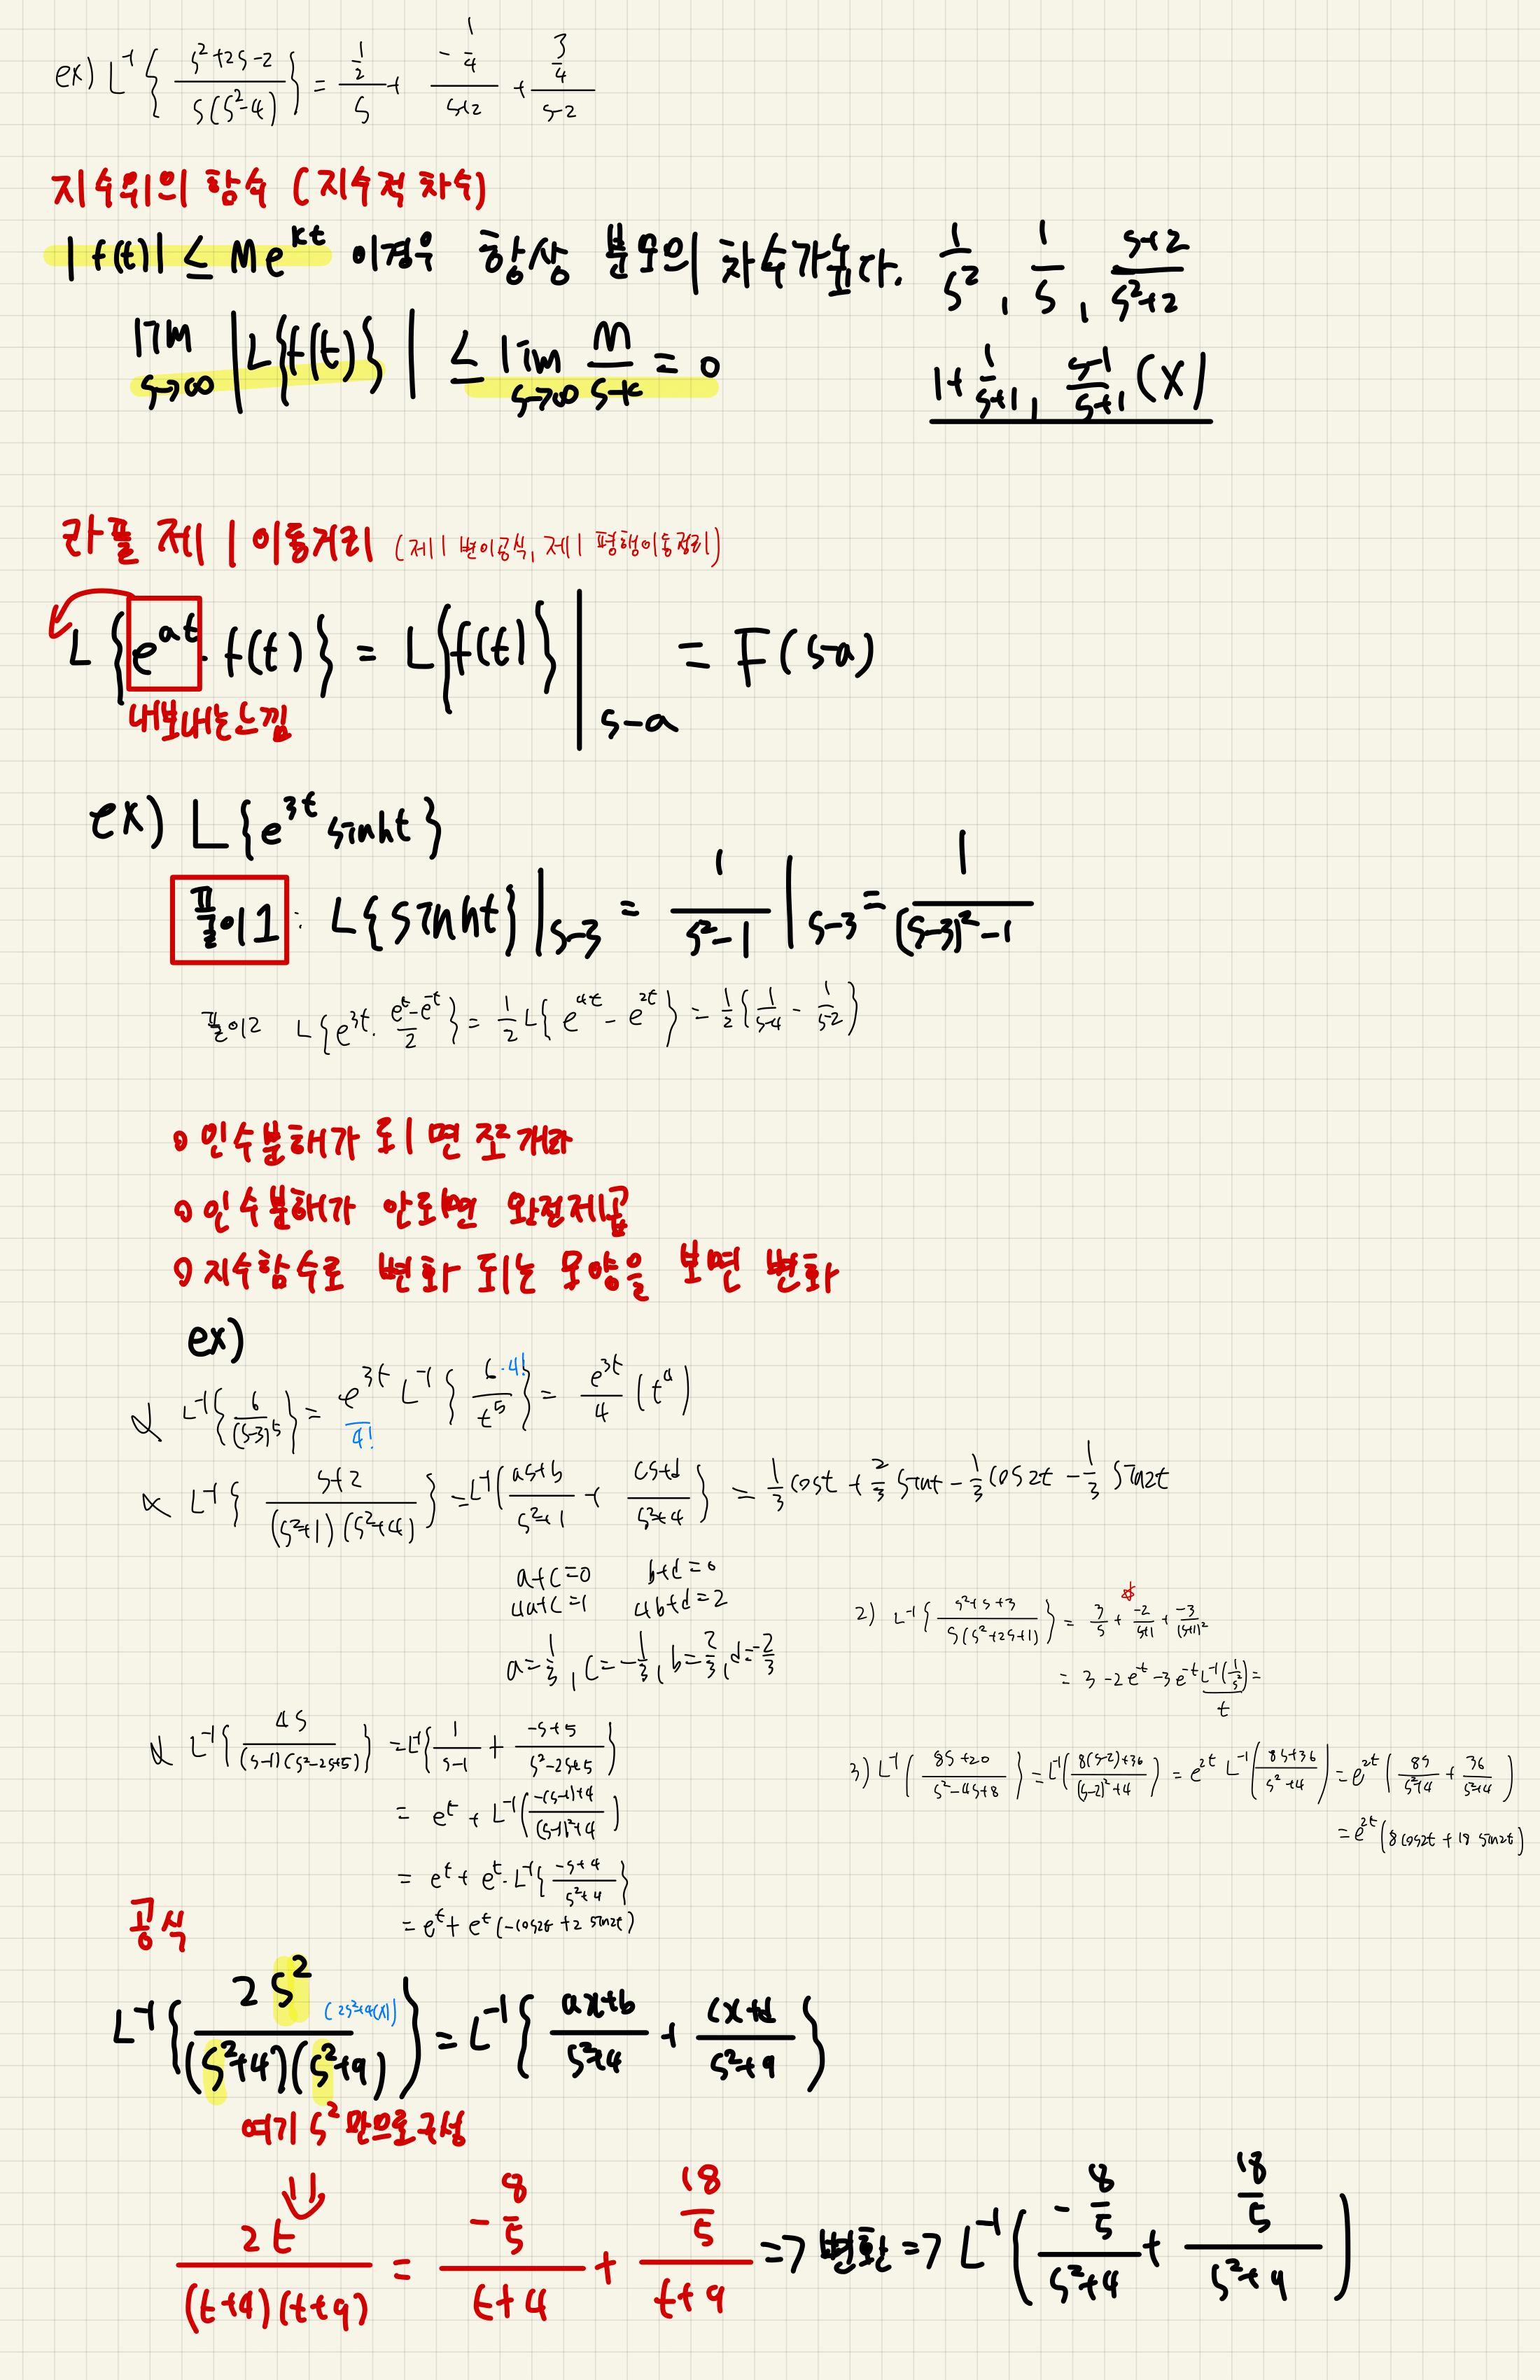 ex) L⁻¹{ (s²+2s-2) / (s(s²-4)) } = (1/2)/s + (-1/4)/(s+2) + (3/4)/(s-2)
지수위의 함수 (지수적 차수)
|f(t)| ≤ Me^{kt} 이경우 항상 분모의 차수가높다. 1/s², 1/s, (s+2)/(s²+2)
lim_{s→∞} |L{f(t)}| ≤ lim_{s→∞} M/(s-k) = 0
1+1/(s+1), (s-1)/(s+1) (X)
라플 제1이동거리 (제1 변이공식, 제1 평행이동정리)
L{e^{at}·f(t)} = L{f(t)}|_{s-a} = F(s-a)
내보내는느낌
ex) L{e^{3t} sinht}
풀이1: L{sinht}|_{s-3} = 1/(s²-1)|_{s-3} = 1/((s-3)²-1)
풀이2 L{e^{3t}·(e^t-e^{-t})/2} = 1/2 L{e^{4t}-e^{2t}} = 1/2{1/(s-4) - 1/(s-2)}
o 인수분해가 되면 쪼개라
o 인수분해가 안되면 완전제곱
o 지수함수로 변화 되는 모양을 보면 변화
ex)
α L⁻¹{6/(s-3)⁵} = e^{3t}/4! L⁻¹{6·4!/t⁵} = e^{3t}/4 (t⁴)
α L⁻¹{(s+2)/((s²+1)(s²+4))} = L⁻¹{(as+b)/(s²+1) + (cs+d)/(s²+4)} = 1/3 cost + 2/3 sint - 1/3 cos2t - 1/3 sin2t
a+c=0 b+d=0
4a+c=1 4b+d=2
a=1/3, c=-1/3, b=2/3, d=-2/3
2) L⁻¹{(s²+s+3)/(s(s²+2s+1))} = 3/s + -2/(s+1) + -3/(s+1)²
= 3-2e^{-t}-3e^{-t}L⁻¹(1/s²)=
t
α L⁻¹{4s/((s-1)(s²-2s+5))} = L⁻¹{1/(s-1) + (-s+5)/(s²-2s+5)}
= e^t + L⁻¹((-(s-1)+4)/((s-1)²+4))
= e^t + e^t·L⁻¹{(-s+4)/(s²+4)}
= e^t + e^t(-cos2t + 2 sin2t)
3) L⁻¹{(8s+20)/(s²-4s+8)} = L⁻¹((8(s-2)+36)/((s-2)²+4)) = e^{2t} L⁻¹((8s+36)/(s²+4)) = e^{2t}(8s/(s²+4) + 36/(s²+4))
= e^{2t}(8cos2t + 18 sin2t)
공식
L⁻¹{2s²/((s²+4)(s²+9))} = L⁻¹{(ax+b)/(s²+4) + (cx+d)/(s²+9)}
(2s²+9(x))
여기 s²만으로구성
2t/((t+4)(t+9)) = (-8/5)/(t+4) + (18/5)/(t+9) => 변환 => L⁻¹((-8/5)/(s²+4) + (18/5)/(s²+9))